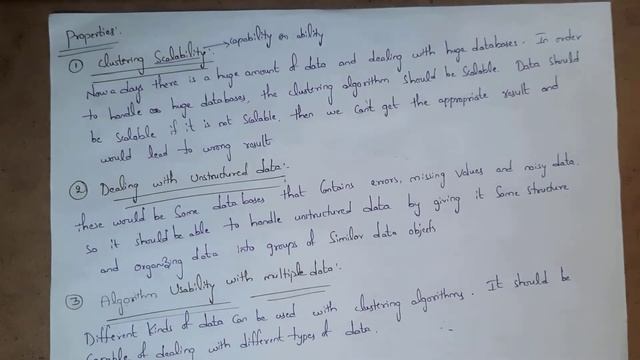 Properties:
① Clustering Scalability → capability or ability
Now a days there is a huge amount of data and dealing with huge databases. In order
to handle huge databases, the clustering algorithm should be scalable. Data should
be scalable if it is not scalable, then we can't get the appropriate result and
would lead to wrong result
② Dealing with Unstructured data:-
these would be some databases that contains errors, missing values and noisy data.
so it should be able to handle unstructured data by giving it some structure
and organizing data into groups of similar data objects
③ Algorithm Usability with multiple data:-
Different kinds of data can be used with clustering algorithms. It should be
capable of dealing with different types of data.